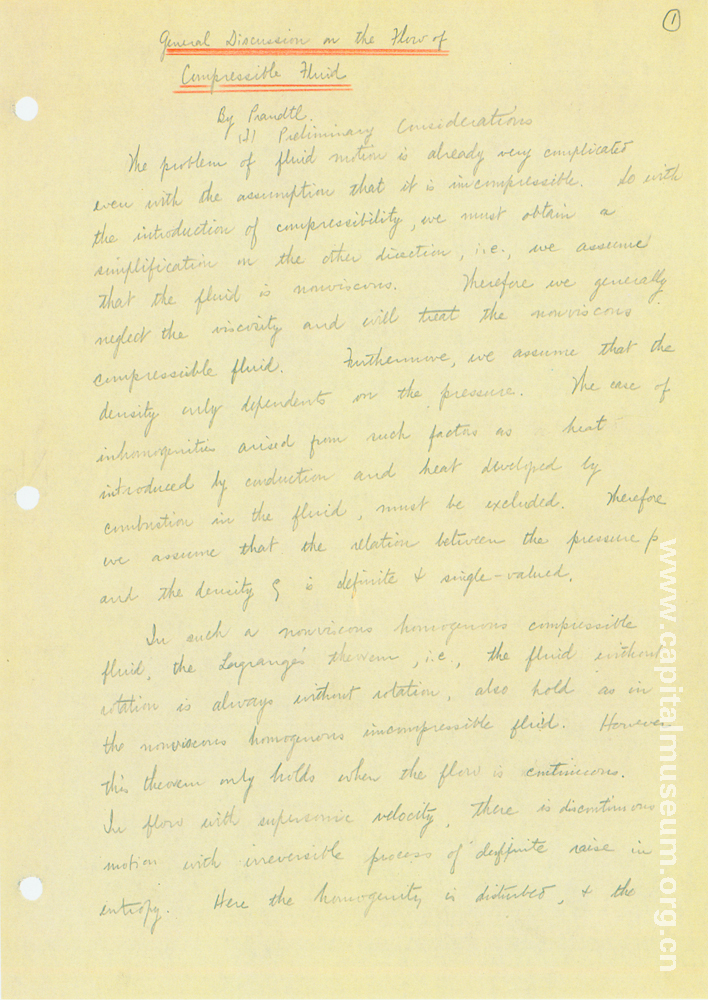 1
General Discussion on the Flow of
Compressible Fluid
By Prandtl.
(I) Preliminary Considerations
The problem of fluid motion is already very complicated
even with the assumption that it is imcompressible. So with
the introduction of compressibility, we must obtain a
simplification on the other direction, i.e., we asseume
that the fluid is nonviscous. Therefore we generally
neglect the viscosity and will treat the nonviscous
compressible fluid. Furthermore, we assume that the
density only dependents on the pressure. The case of
inhomogenities arised from such factors as heat
introduced by conduction and heat developed by
combustion in the fluid, must be excluded. Therefore
we assume that the relation between the pressure p
and the density ρ is definite & single-valued.
In such a nonviscous homogenous compressible
fluid, the Lagrange's theorem, i.e., the fluid without
rotation is always without rotation, also hold as in
the nonviscous homogenous imcompressible fluid. However
this theorem only holds when the flow is continuous.
In flow with supersonic velocity, there is discontinuous
motion with irreversible process of definite raise in
entropy. Here the homogenity is disturbed, & the
www.capitalmuseum.org.cn